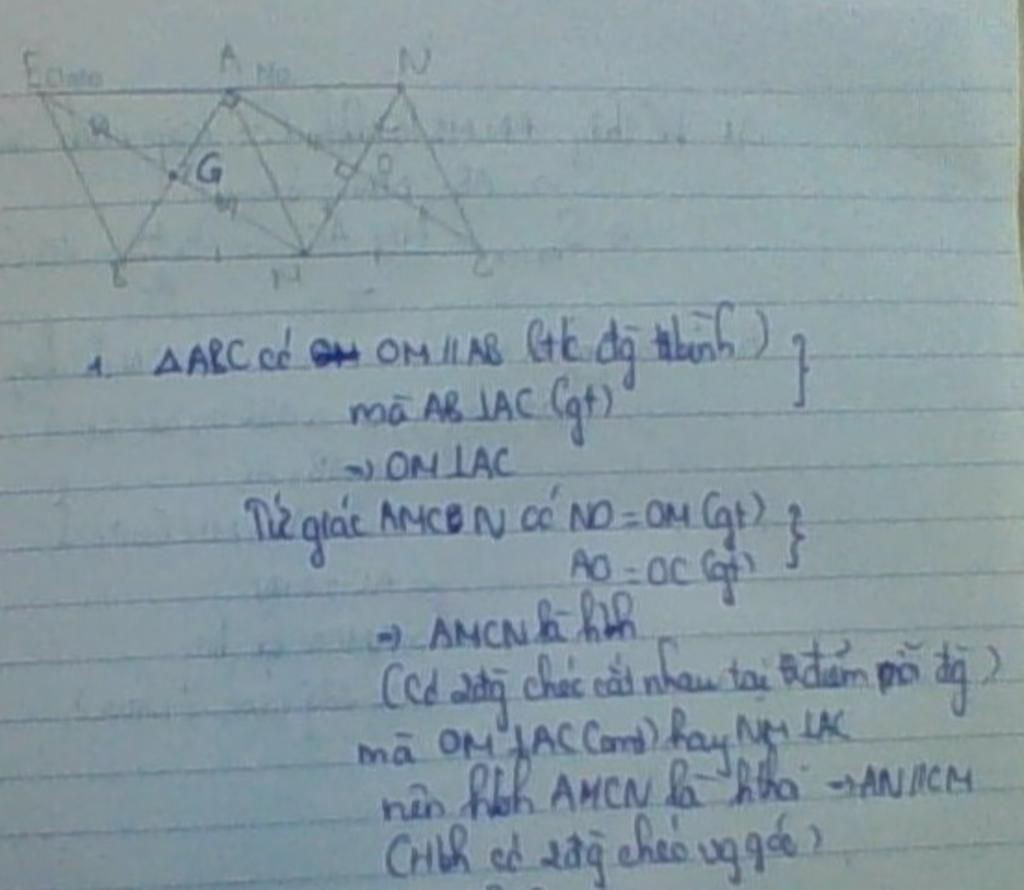 E A N
G O
B M C
1. ΔABC có OM // AB (t/c đg tbình)
mà AB ⊥ AC (gt)
⇒ OM ⊥ AC
Tứ giác AMCN có NO = OM (gt)
AO = OC (gt)
⇒ AMCN là hbh
(Có 2 đg chéo cắt nhau tại tđiểm mỗi đg)
mà OM ⊥ AC (cmt) hay NM ⊥ AC
nên hbh AMCN là hthoi → AN // CM
(Hbh có 2 đg chéo vg góc)